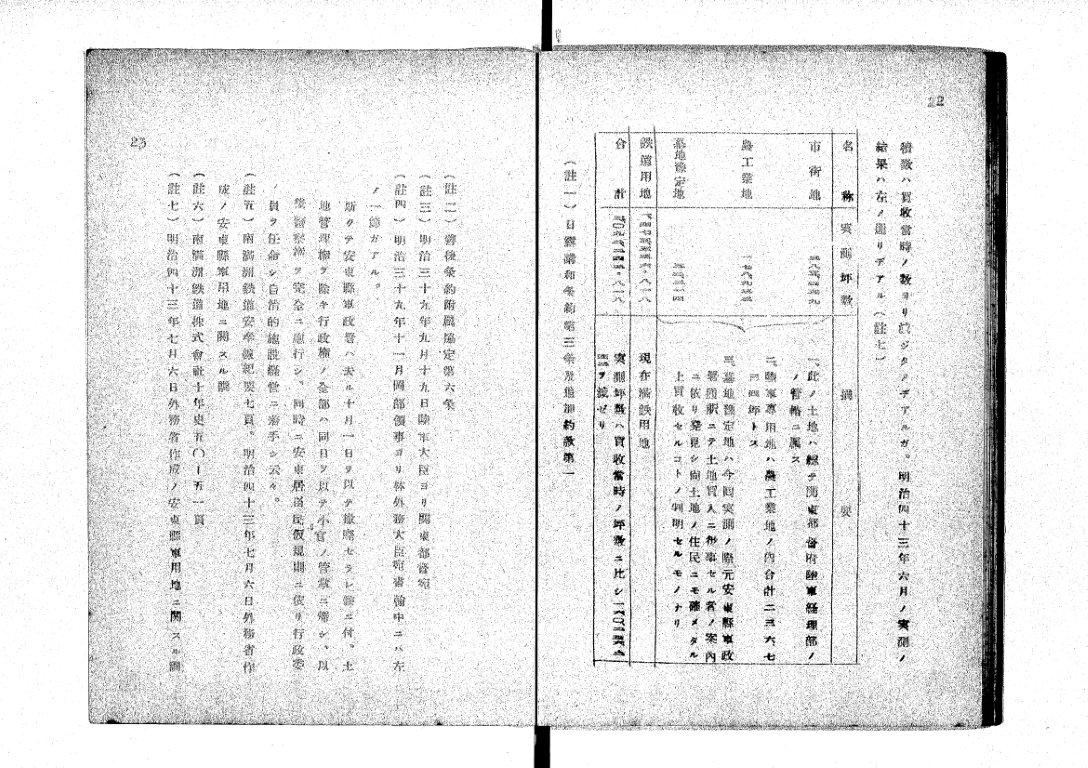 22
積數ハ買收當時ノ數ヨリ減ジタノデアルガ。明治四十三年六月ノ実測ノ
結果ハ左ノ通リデアル(註七)
名稱 実測坪数 摘要
市街地
一、此ノ土地ハ總テ関東都督府陸軍経理部ノ
ノ管轄ニ属ス
農工業地
二、陸軍専用地ハ農工業地ノ内合計二三六七
坪トス
墓地豫定地
三、墓地豫定地ハ今回実測ノ際元安東縣軍政
署ニテ土地買入ニ従事セル者ノ案内
ニ依リ発見シ尚土地ノ住民ニモ確メタル
上買收セルコトノ判明セルモノナリ
鉄道用地
現在満鉄用地
合計
実測坪数ハ買收當時ノ坪数ニ比シ
ヲ減ゼリ
(註一)日露講和条約第三条及追加約款第一
23
(註二)善後条約附属協定第六条
(註三)明治三十九年九月十九日陸軍大臣ヨリ関東都督宛
(註四)明治三十九年十一月岡部領事ヨリ林外務大臣宛書翰中ニハ左
ノ一節ガアル。
斯クテ安東縣軍政署ハ去ル十月一日ヲ以テ撤廃セラレ候ニ付、土
地管理権ヲ除キ行政権ノ全部ハ同日ヲ以テ小官ノ管掌ニ帰シ、以
来警察権ヲ完全ニ施行シ、同時ニ安東居留民仮規則ニ依リ行政委
員ヲ任命シ自治的施設経営ニ着手シ云々。
(註五)南満洲鉄道安奉線紀要七頁。明治四十三年七月六日外務省作
成ノ安東縣軍用地ニ関スル調
(註六)南満洲鉄道株式會社十年史五〇—五一頁
(註七)明治四十三年七月六日外務省作成ノ安東縣軍用地ニ関スル調